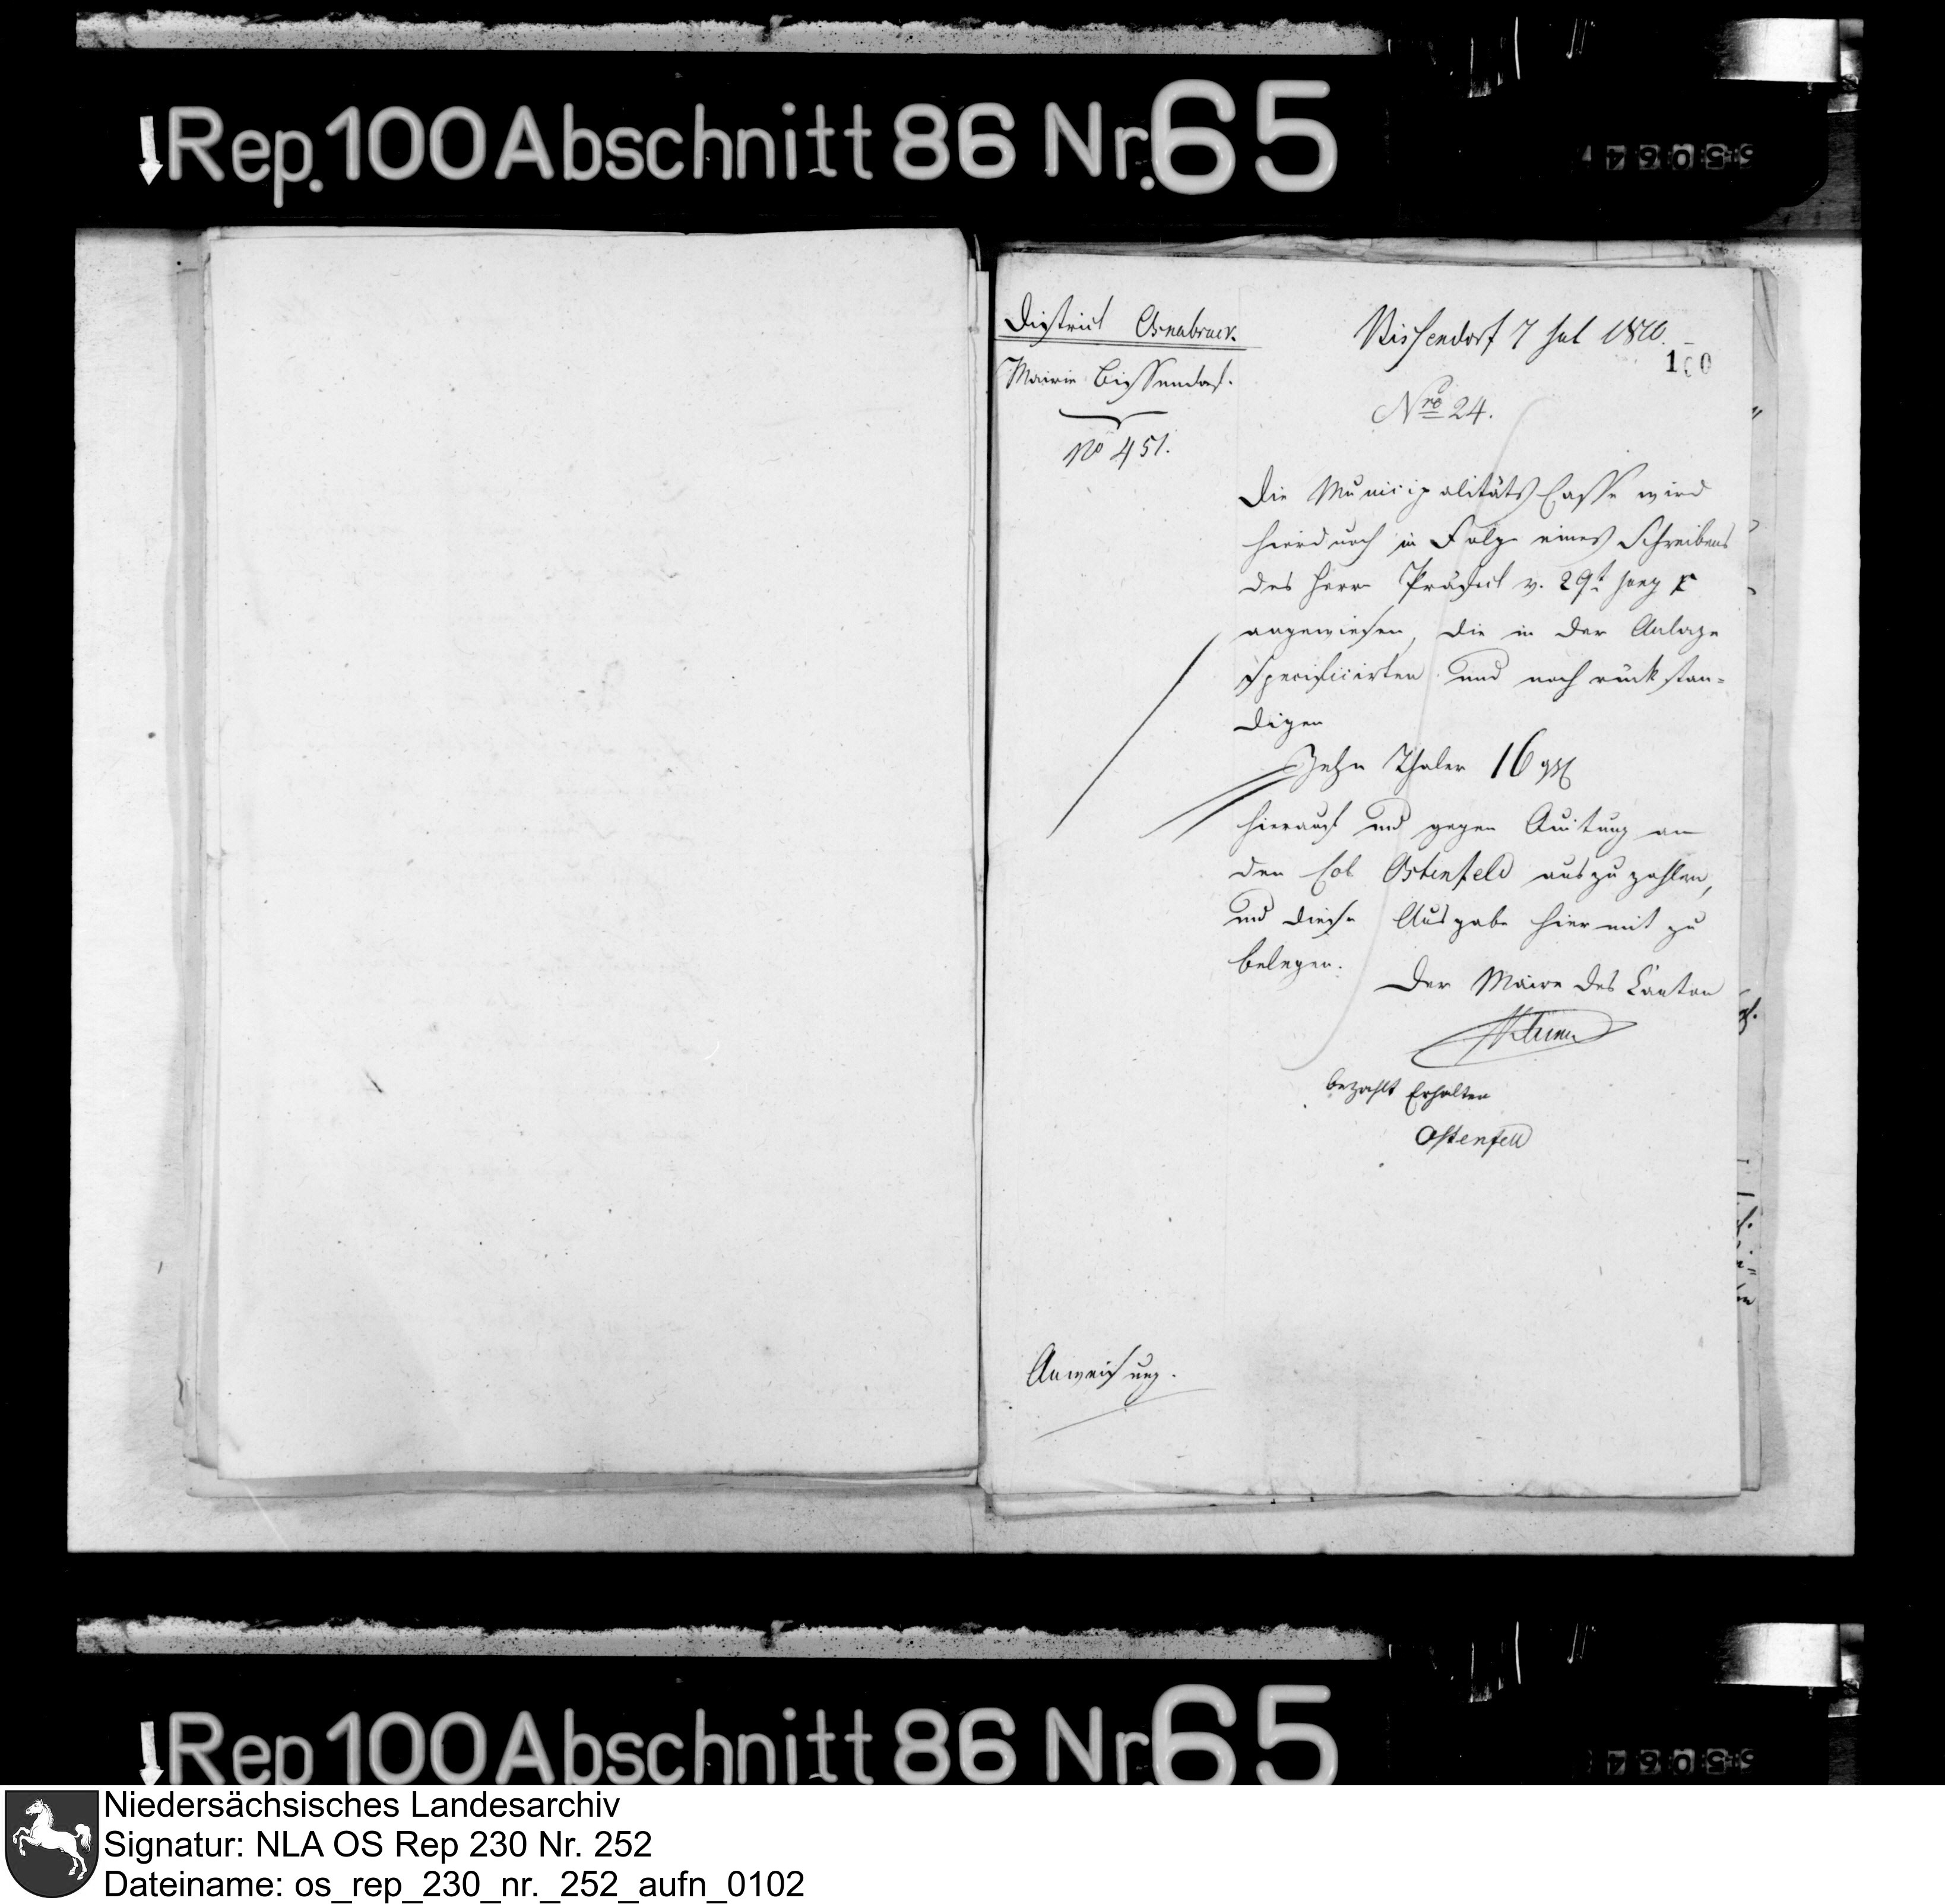 Rep. 100 Abschnitt 86 Nr. 65
District Osnabruck.
Mairie Bissendorf.
No 451.
Bissendorf 7 Jul 1810.
100
Nro 24.
Die Municipalitäts Casse wird
hierdurch in Folge eines Schreibens
des Herrn Präfect v. 29t
angewiesen, die in der Anlage
specificirten und noch rückstan-
digen
Zehn Thaler 16 ggl
hierauf und gegen Quitung an
den Col Ostenfeld auszuzahlen,
und diese Ausgabe hiermit zu
belegen.
Der Maire des Canton
bezahlt Erhalten
Ostenfeld
Anweisung.
Rep 100 Abschnitt 86 Nr. 65
Niedersächsisches Landesarchiv
Signatur: NLA OS Rep 230 Nr. 252
Dateiname: os_rep_230_nr._252_aufn_0102